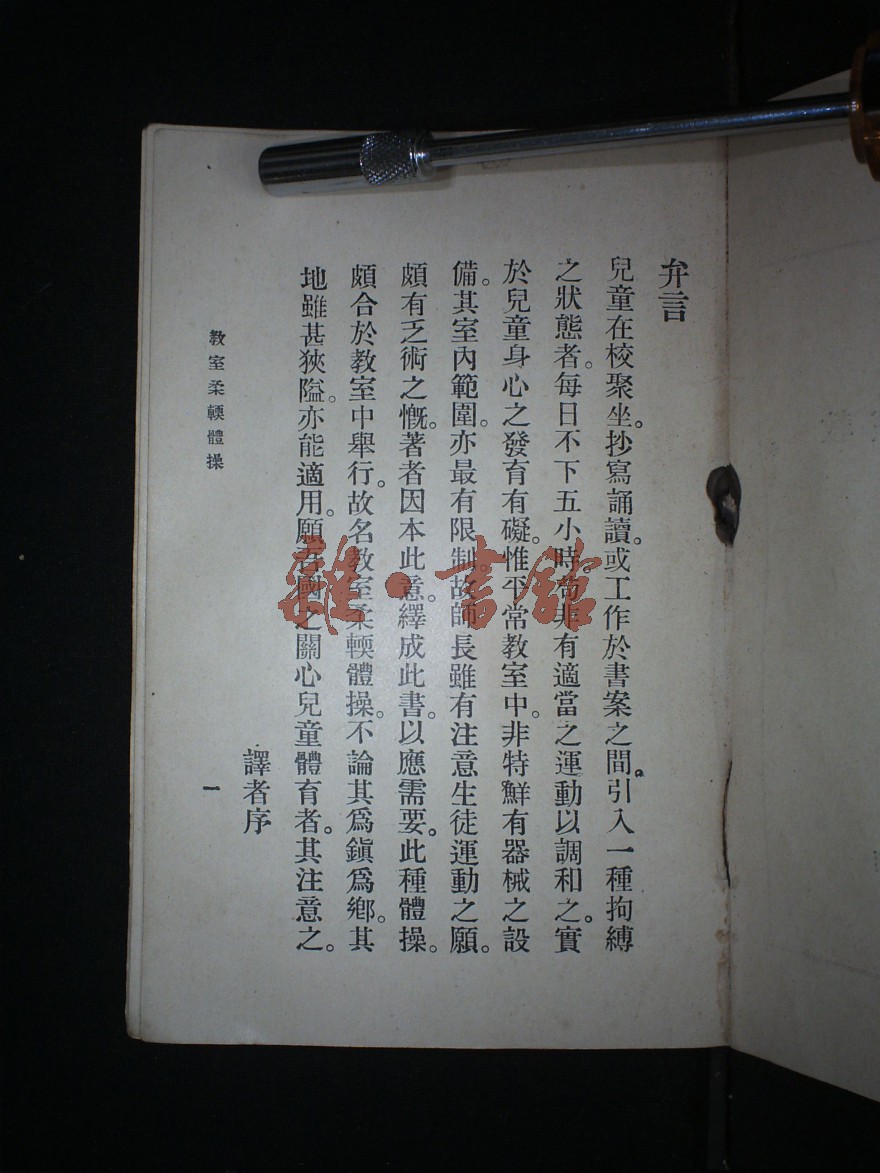 弁言
兒童在校聚坐。抄寫誦讀。或工作於書案之間。引入一種拘縛
之狀態者。每日不下五小時。苟非有適當之運動以調和之。實
於兒童身心之發育有礙。惟平常教室中。非特鮮有器械之設
備。其室內範圍。亦最有限制。故師長雖有注意生徒運動之願。
頗有乏術之慨。著者因本此意。繹成此書。以應需要。此種體操。
頗合於教室中舉行。故名教室柔輭體操。不論其爲鎭爲鄕。其
地雖甚狹隘。亦能適用。願吾國之關心兒童體育者。其注意之。
譯者序
教室柔輭體操
一
雜·書館